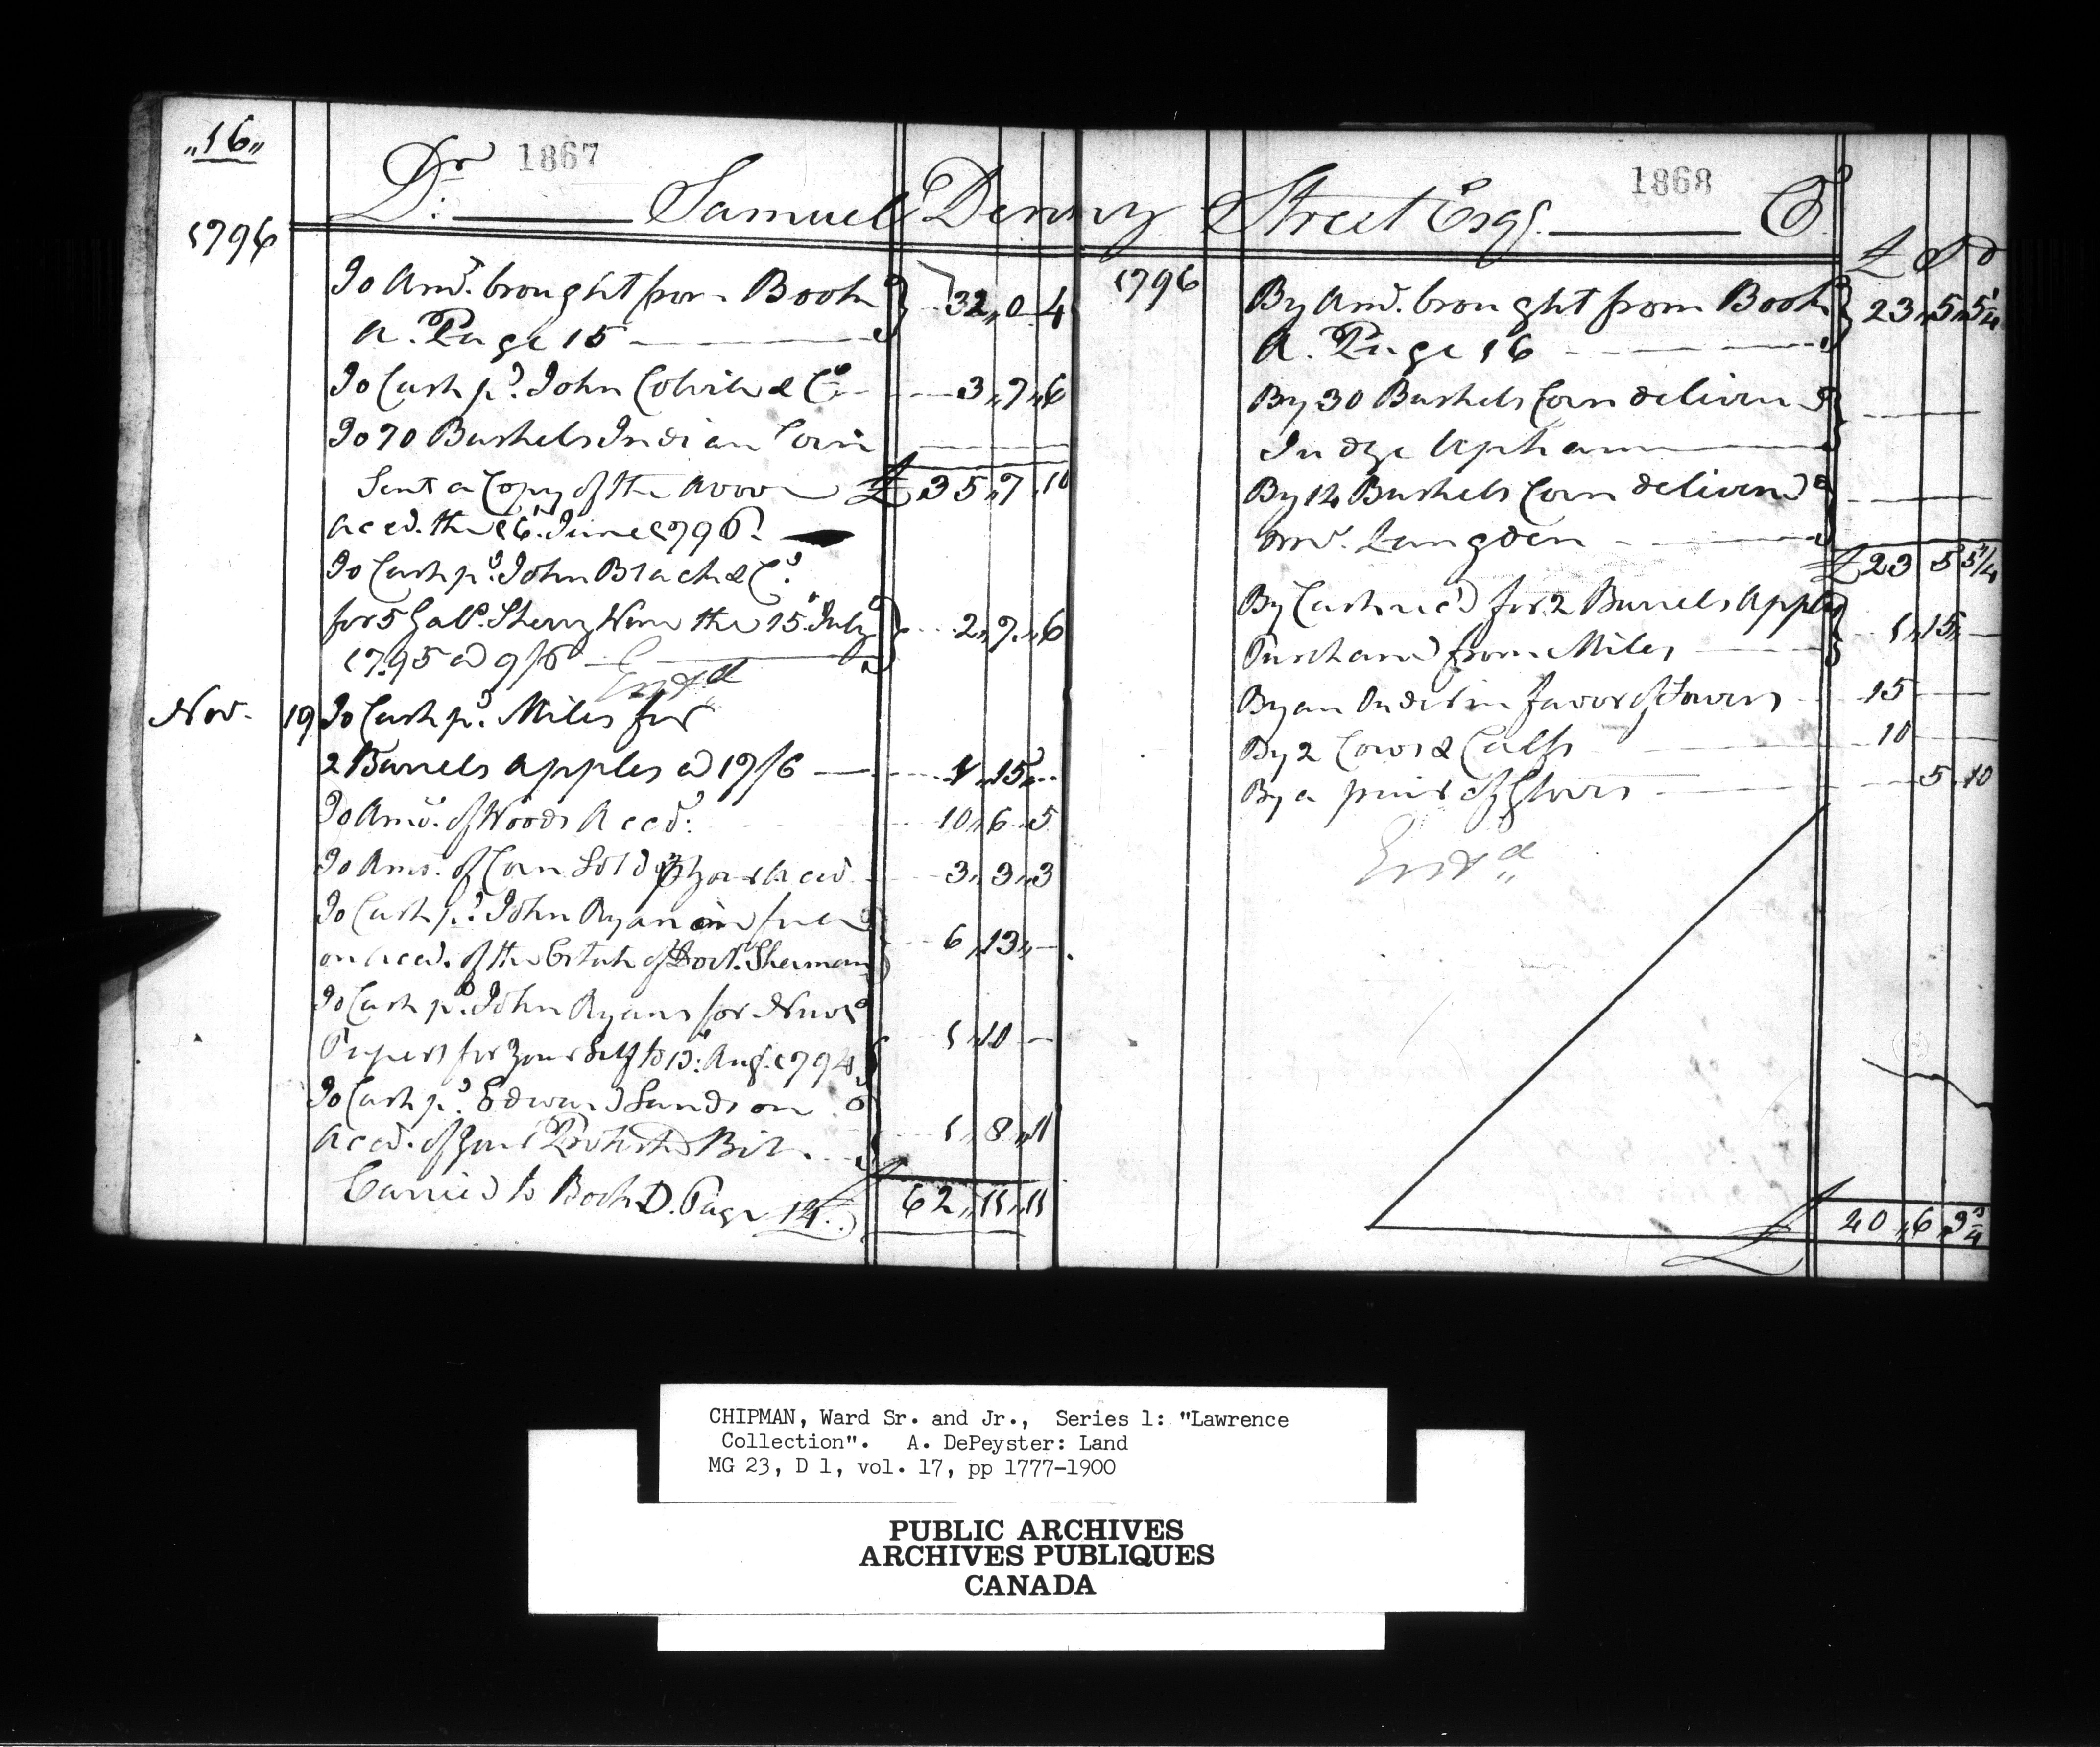 "16"
1867
1868
Dr. Samuel Denny Street Esqr. Cr.
1796
To Amt. brought from Book
A. Page 15 32,,0 4
To Cash pd. John Colvile & Co 3,,7,,6
To 70 Bushels Indian Corn
Sent a Copy of the Above £ 35,,7,,10
Acct. the 16. June 1796.
To Cash pd. John Black & Co.
for 5 Gals. Sherry Wine the 15. July
1795 at 9/6 2,,7,,6
Entd
Nov. 19 To Cash pd. Miles for
2 Barrels Apples at 17/6 1,,15,,
To Amt. of Woods Acct. 10,,6,,5
To Amt. of Corn Sold pr your Acct 3,,3,,3
To Cash pd. John Ryan in full
on Acct. of the Estate of Doct. Sherman 6,,13,,—
To Cash pd. John Ryans for News
Papers for your Self to 15. Aug. 1794 1,,10 —
To Cash pd. Edward Sands on
Acct. of your Protested Bill 1,,8,,11
Carried to Book D. Page 14. £ 62,,11,,11
£ S d
1796
By Amt. brought from Book
A. Page 16 23,,5,,5¼
By 30 Bushels Corn deliverd
Judge Upham
By 12 Bushels Corn deliverd
Mr. Langden
£ 23 5 5¼
By Cash recd for 2 Barrels Apples
Purchased from Miles 1,,15,,—
By an Order in favor of Towers 15
By 2 Cows & Calfs 10
By a pair of Gloves 5.10
Entd
£ 40,,6,,3¾
CHIPMAN, Ward Sr. and Jr., Series 1: "Lawrence
Collection". A. DePeyster: Land
MG 23, D 1, vol. 17, pp 1777-1900
PUBLIC ARCHIVES
ARCHIVES PUBLIQUES
CANADA